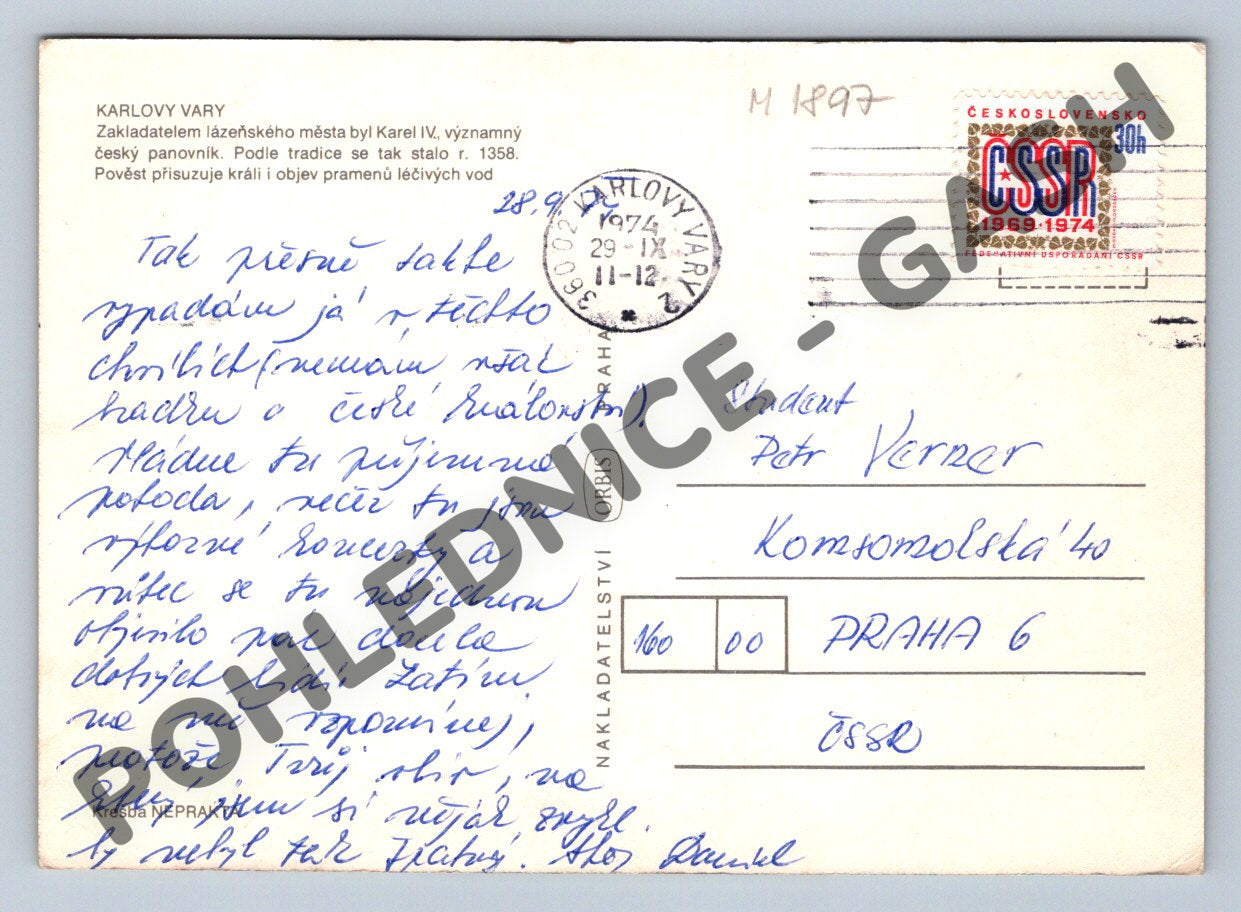 KARLOVY VARY
Zakladatelem lázeňského města byl Karel IV., významný
český panovník. Podle tradice se tak stalo r. 1358.
Pověst přisuzuje králi i objev pramenů léčivých vod
M 1897
ČESKOSLOVENSKO
30h
ČSSR
1969·1974
FEDERATIVNÍ USPOŘÁDÁNÍ ČSSR
360 02 KARLOVY VARY 2
1974
29-IX
11-12
28.9.
Tak přesně takhle
vypadám já v těchto
chvílích (nemám však
české království).
Vládne tu příjemná
pohoda, večer tu jsou
výborné koncerty a
vůbec se tu najednou
objevilo pár docela
dobrých lidí. Zatím
na mě vzpomínej,
protože Tvůj
jsem si nějak zvykl.
by nebyl tak špatný. Ahoj Daniel
Kresba NEPRAKTA
NAKLADATELSTVÍ ORBIS PRAHA
Student
Petr Verner
Komsomolská 40
160 00 PRAHA 6
ČSSR
POHLEDNICE - GASH